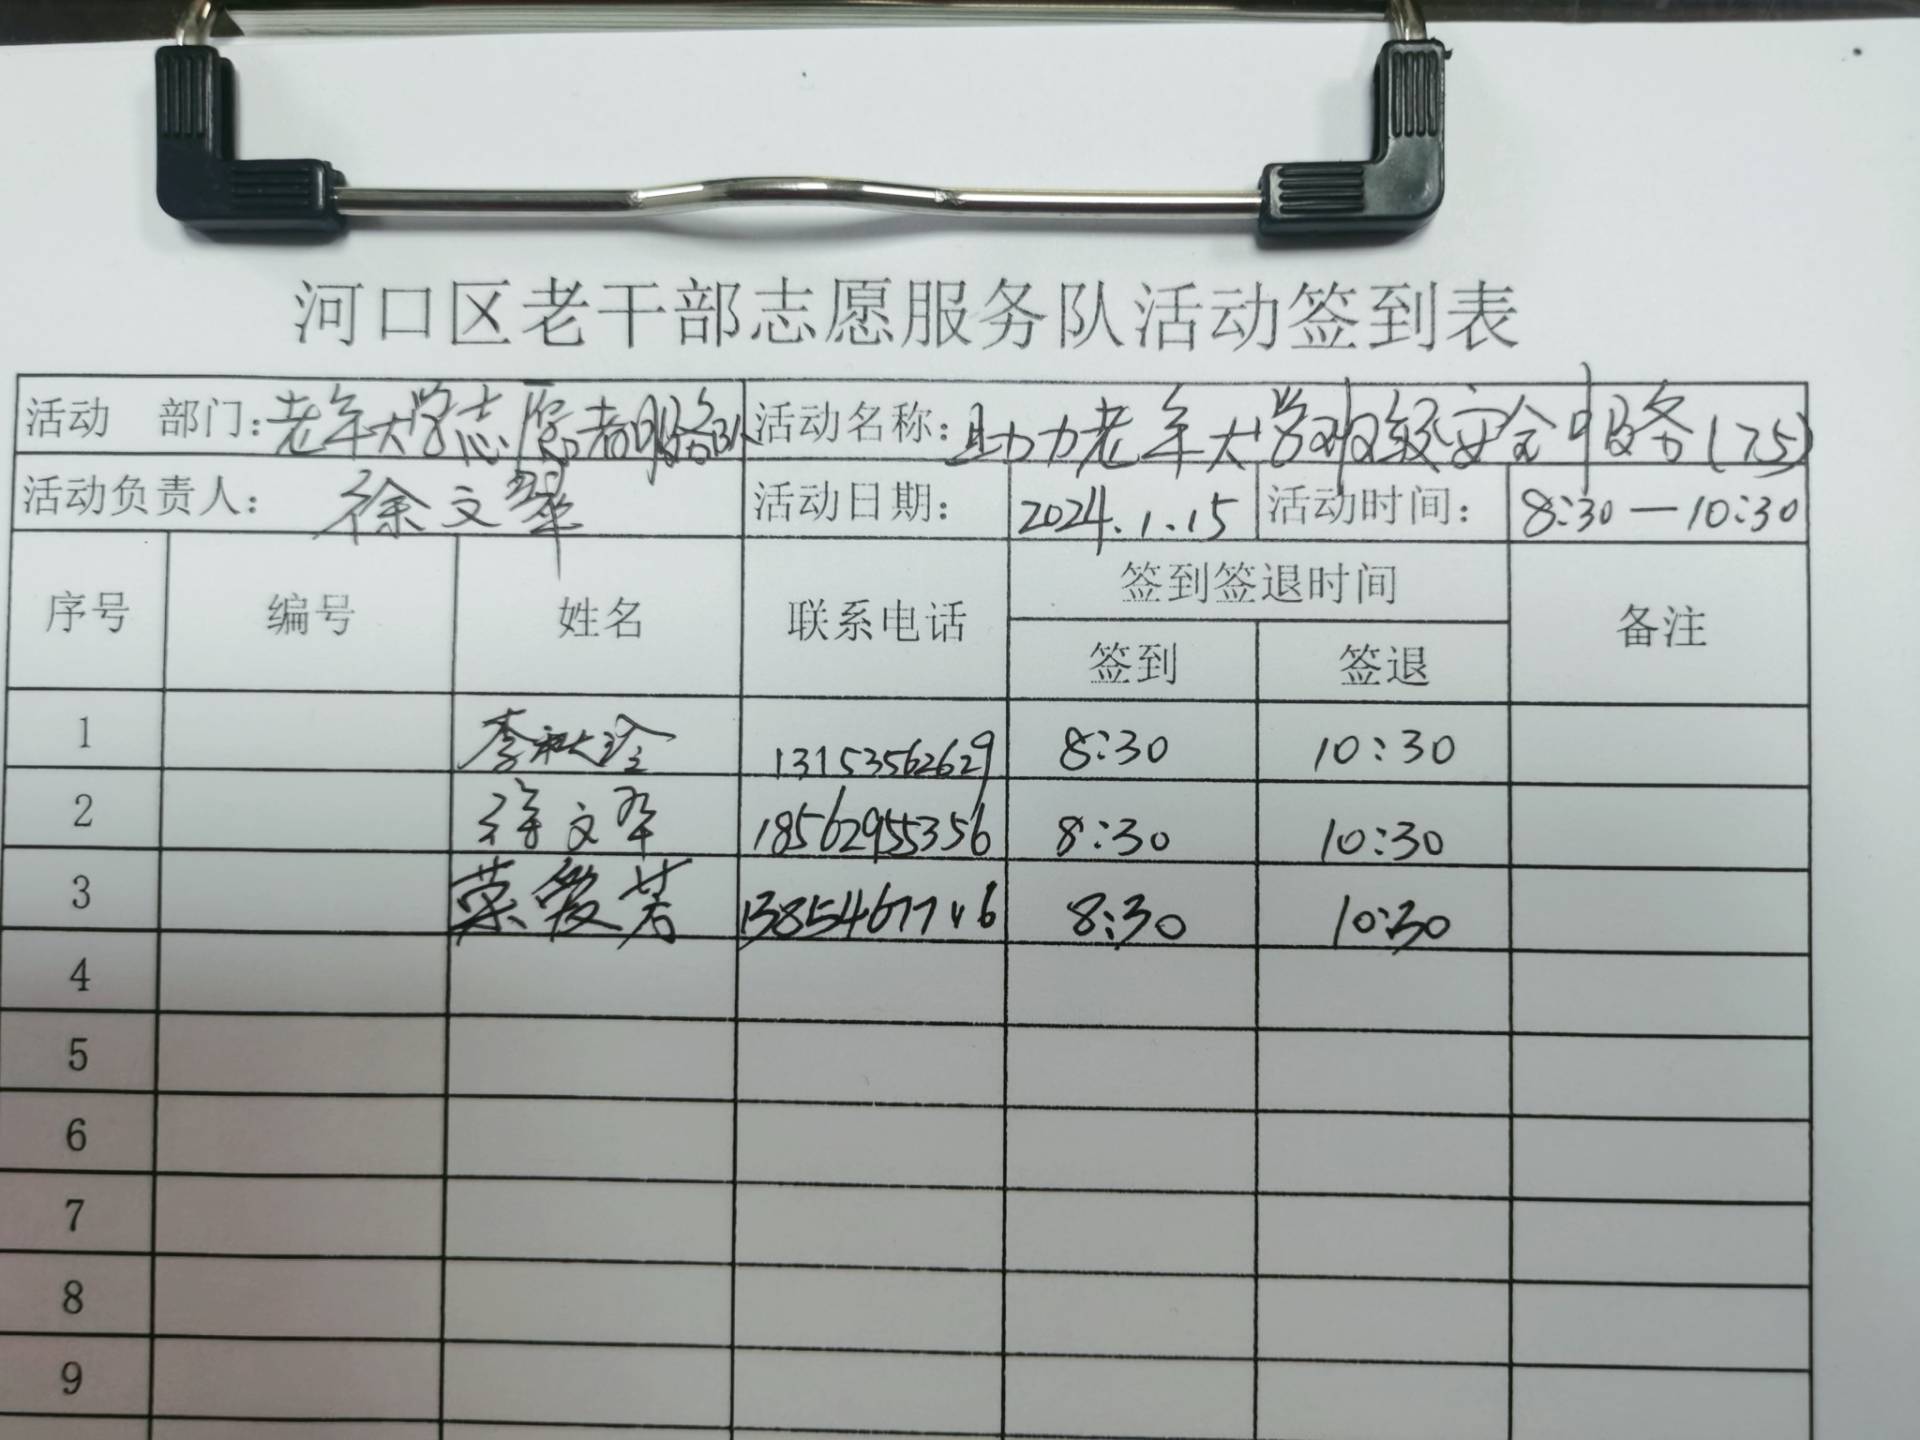 河口区老干部志愿服务队活动签到表
活动 部门：老年大学志愿者服务队 活动名称：助力老年大学班级安全服务(75)
活动负责人：徐文翠 活动日期：2024.1.15 活动时间：8:30—10:30
序号 编号 姓名 联系电话 签到签退时间 备注
签到 签退
1 李秋玲 13153562629 8:30 10:30
2 徐文翠 18562955356 8:30 10:30
3 8:30 10:30
4
5
6
7
8
9